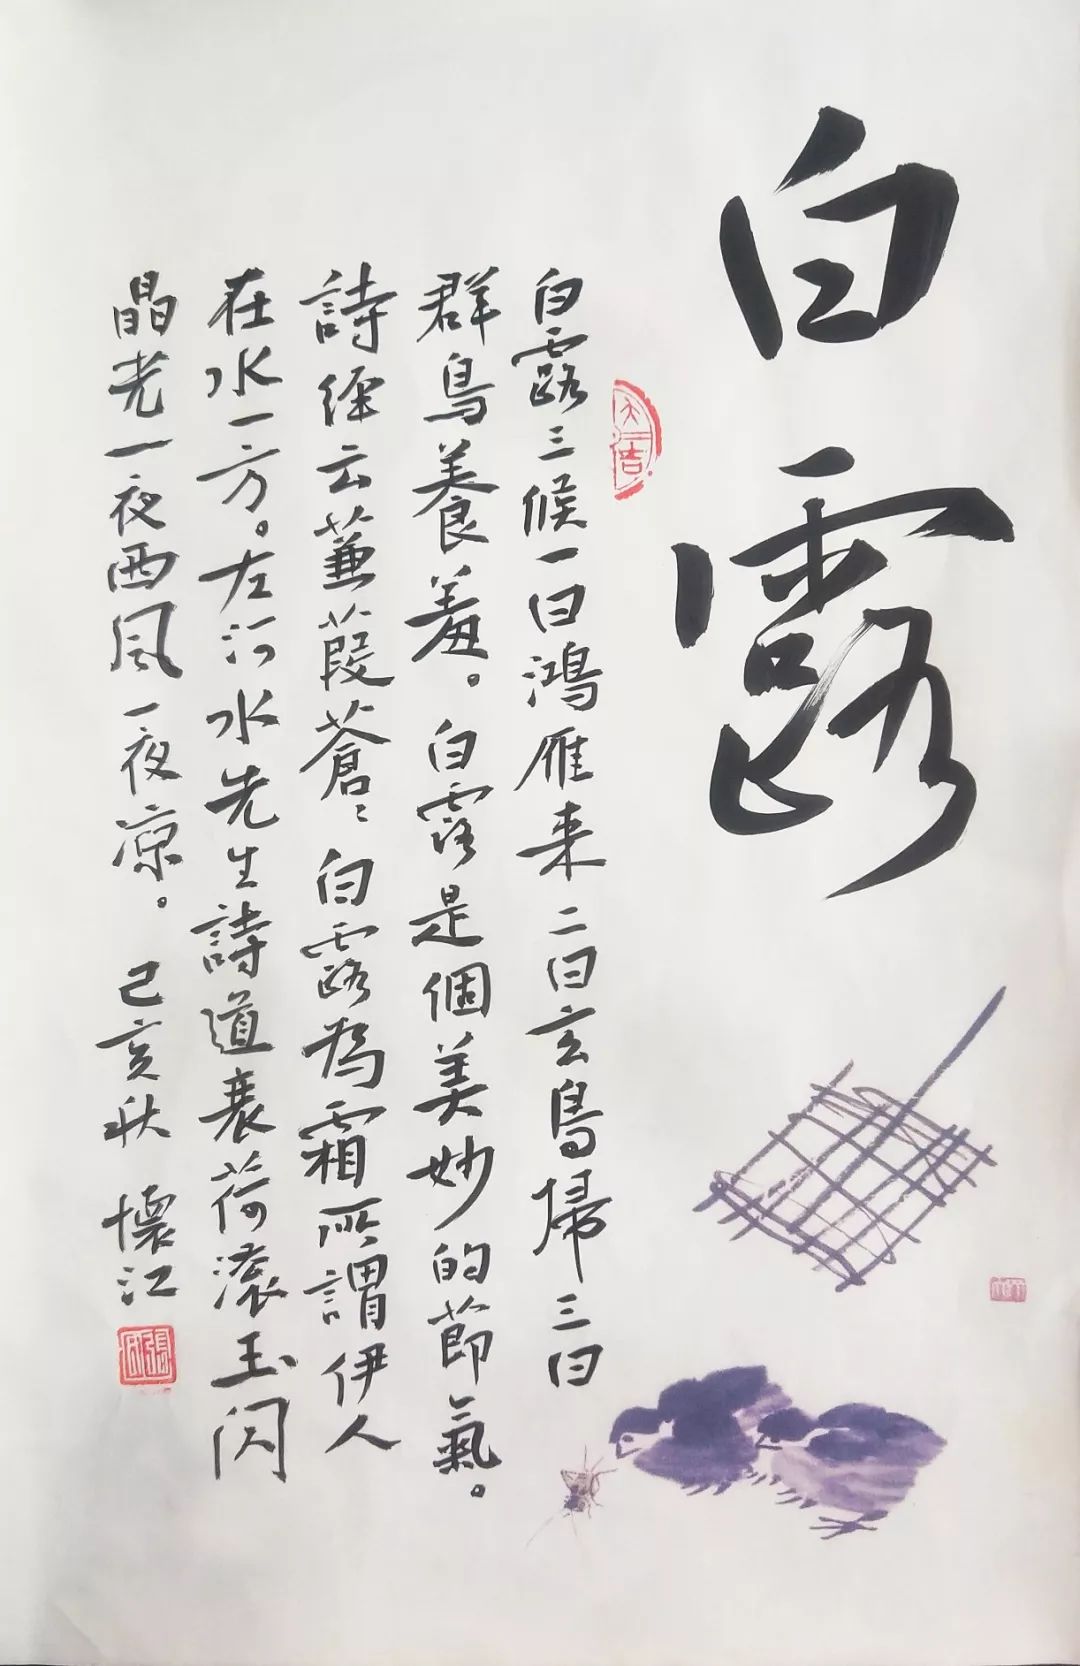 白露
大吉
白露三候一曰鴻雁来二曰玄鳥歸三曰
群鳥養羞。白露是個美妙的節氣。
詩經云蒹葭蒼〻白露為霜所謂伊人
在水一方。左河水先生詩道衰荷滚玉闪
晶光一夜西风一夜凉。己亥秋 懷江